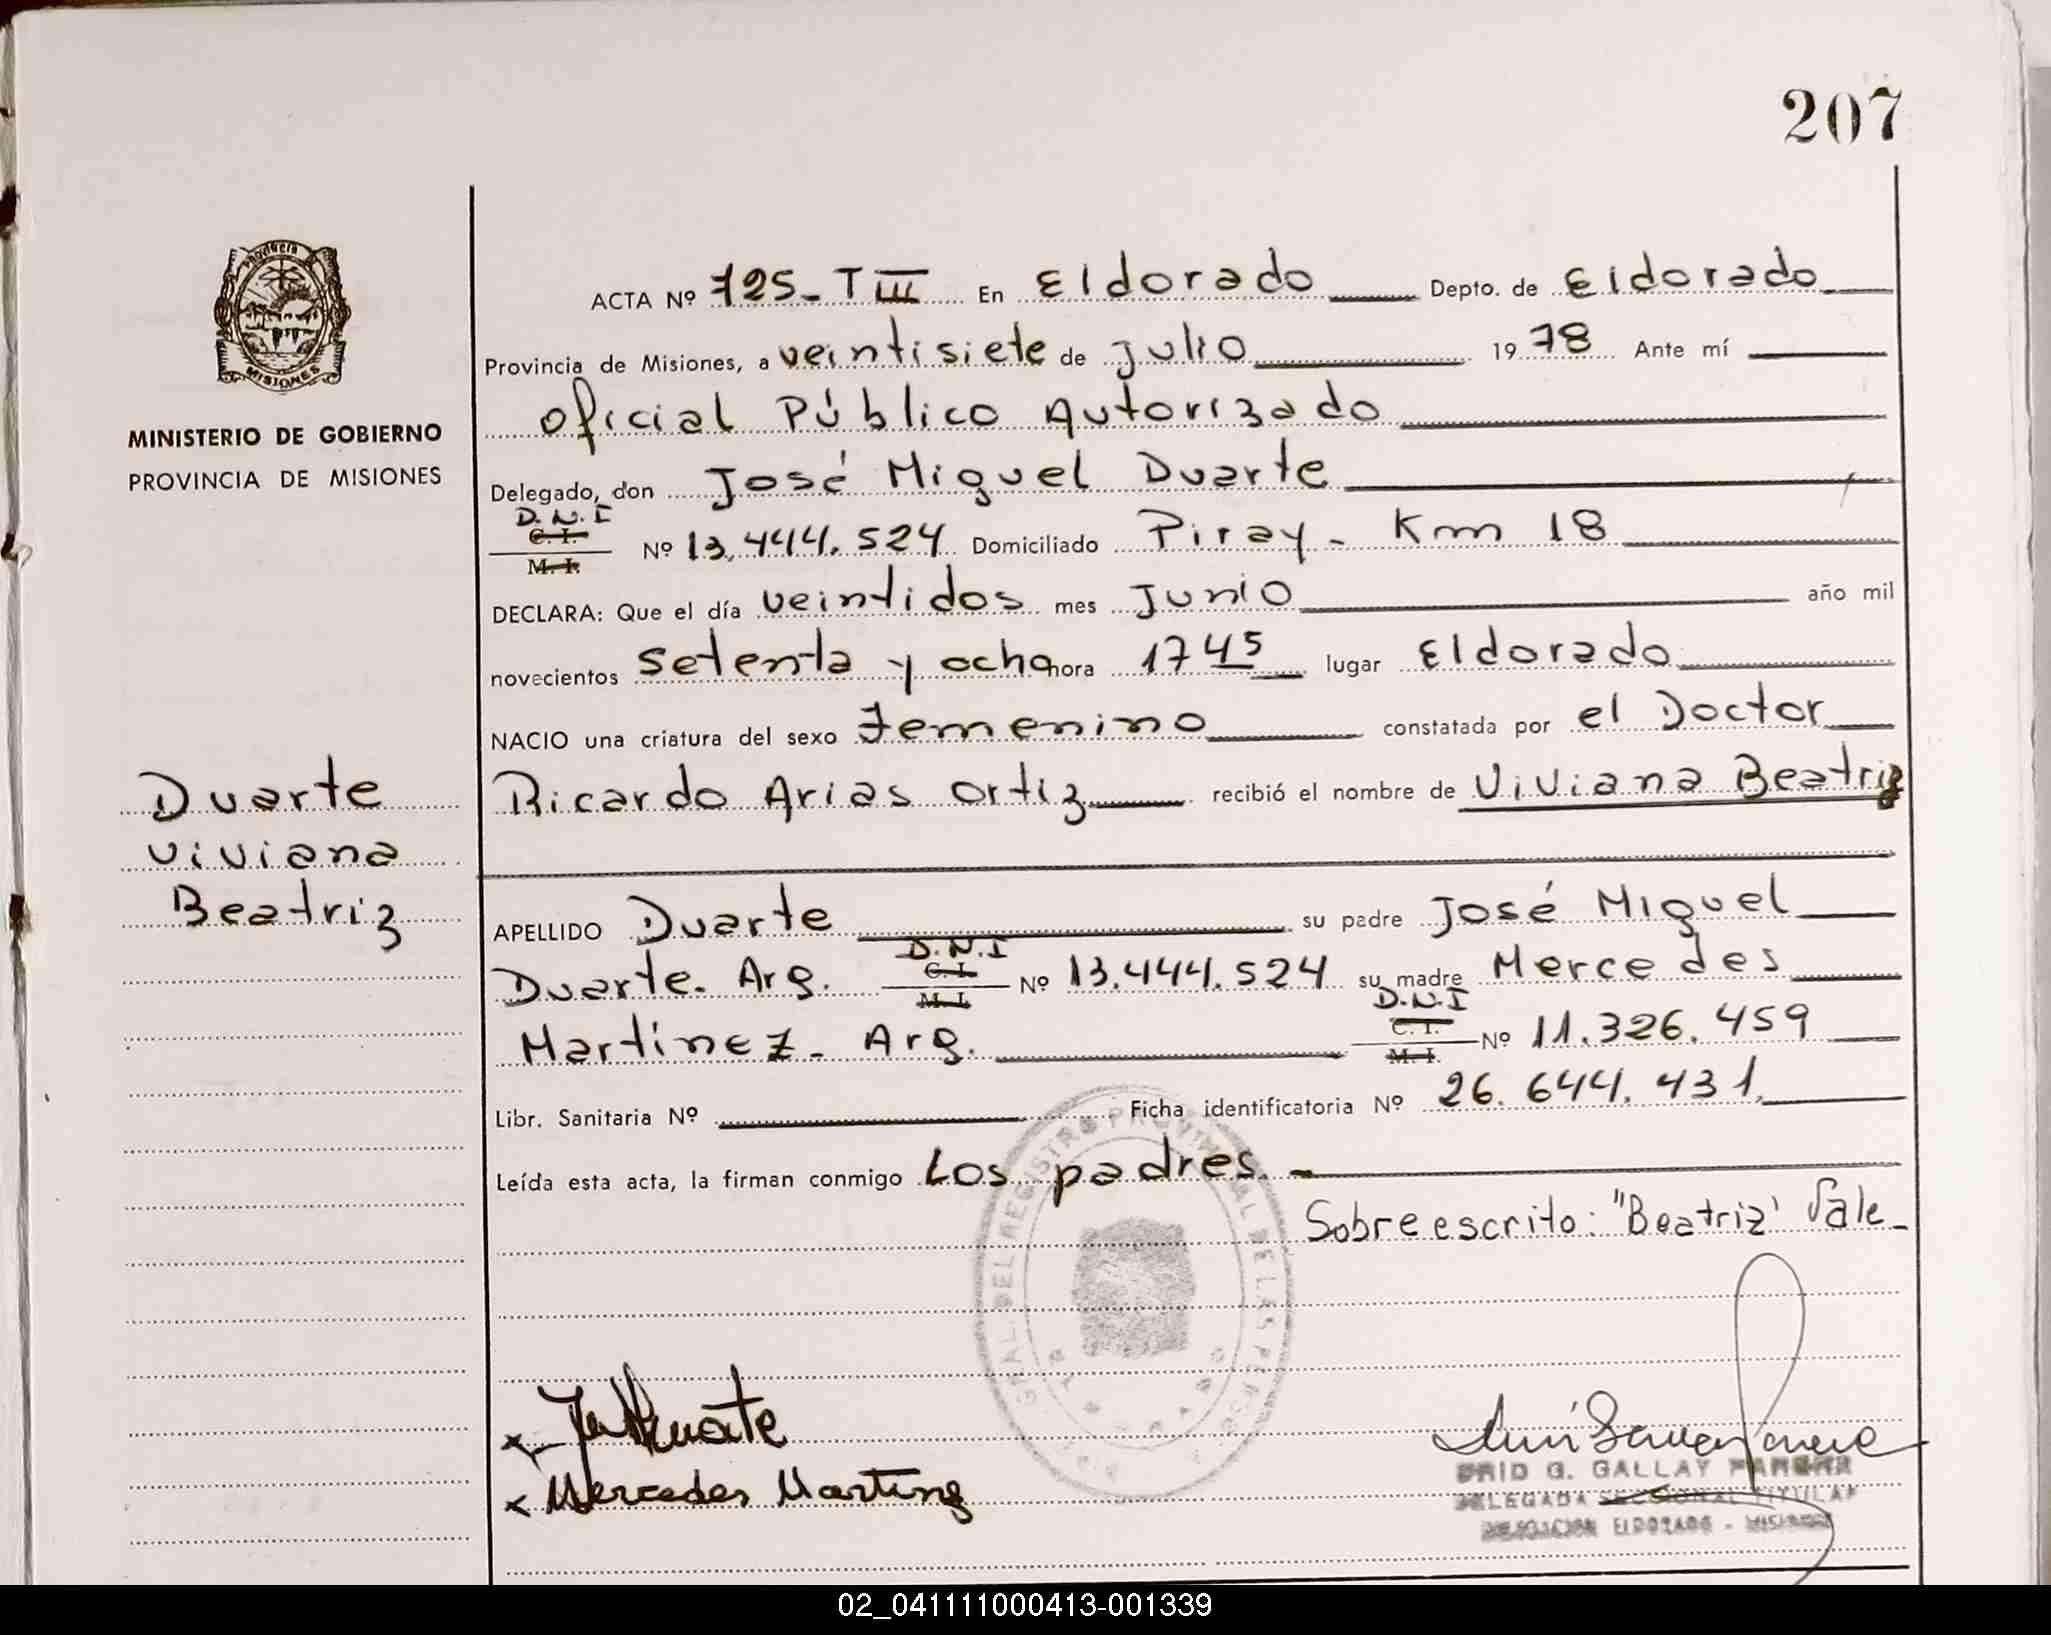 207
ACTA Nº 725-TIII En Eldorado Depto. de Eldorado
Provincia de Misiones, a veintisiete de Julio 1978 Ante mí
Oficial Público Autorizado
Delegado, don José Miguel Duarte
D.N.I
C. I.
M. I. Nº 13.444.524 Domiciliado Piray - Km 18
DECLARA: Que el día veintidos mes Junio año mil
novecientos setenta y ocho hora 1745 lugar Eldorado
NACIO una criatura del sexo Femenino constatada por el Doctor
Ricardo Arias Ortiz recibió el nombre de Viviana Beatriz
APELLIDO Duarte su padre José Miguel
Duarte. Arg. D.N.I C. I. M. I. Nº 13.444.524 su madre Mercedes
Martínez - Arg. D.N.I C. I. M. I. Nº 11.326.459
Libr. Sanitaria Nº Ficha identificatoria Nº 26.644.431
Leída esta acta, la firman conmigo Los padres. -
Sobre escrito: "Beatriz" Vale
PROVINCIA
MISIONES
MINISTERIO DE GOBIERNO
PROVINCIA DE MISIONES
Duarte
Viviana
Beatriz
GRAL. DEL REGISTRO PROVINCIAL DE LAS PERSO
x Duarte
x Mercedes Martinez
G. GALLAY
DELEGADA SECCIONAL TITULAR
DELEGACION ELDORADO - MISIONES
02_041111000413-001339